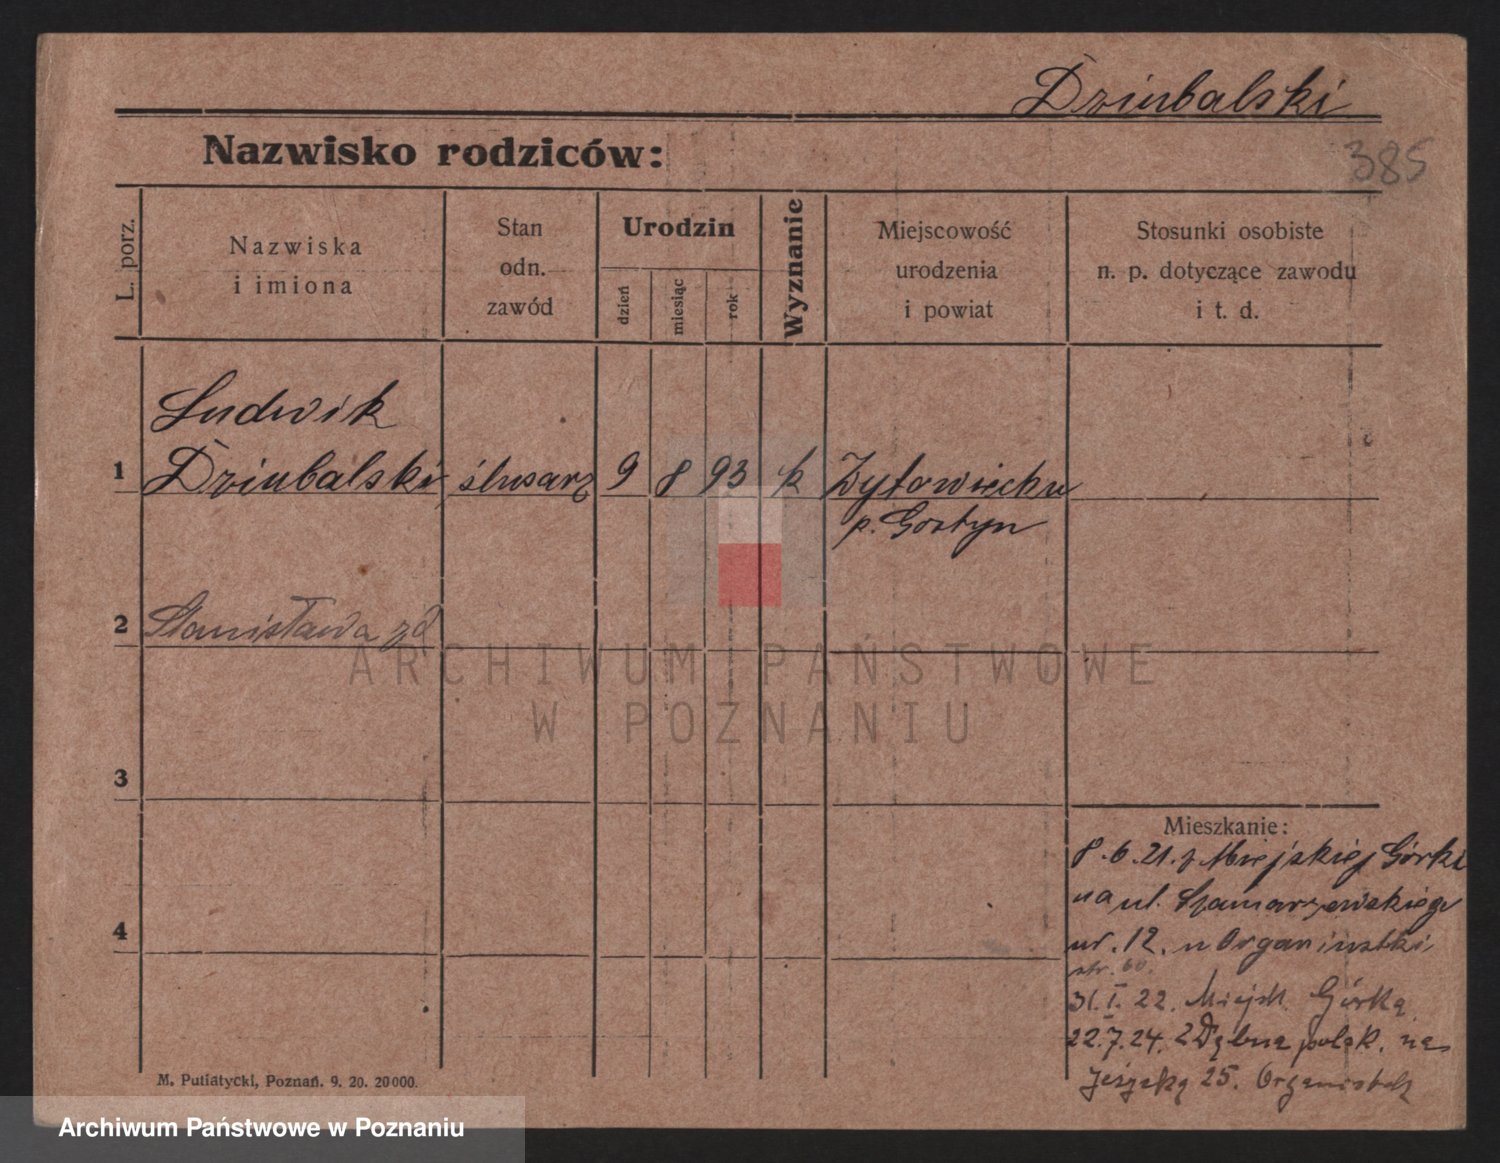 Dziubalski
385
Nazwisko rodziców:
L. porz.
Nazwiska
i imiona
Stan
odn.
zawód
Urodzin
dzień
miesiąc
rok
Wyznanie
Miejscowość
urodzenia
i powiat
Stosunki osobiste
n. p. dotyczące zawodu
i t. d.
Ludwik
1 Dziubalski ślusarz 9 8 93 k Żytowiecku
p. Gostyn
2 Stanisława
3
Mieszkanie:
8.6.21. z Miejskiej Górki
na ul.
4
nr. 12. u Organistki
str. 60.
31.I.22. Miejsk. Górka
22.7.24. z polsk. na
25. Organistek
M. Putiatycki, Poznań. 9. 20. 20000.
ARCHIWUM PAŃSTWOWE
W POZNANIU
Archiwum Państwowe w Poznaniu